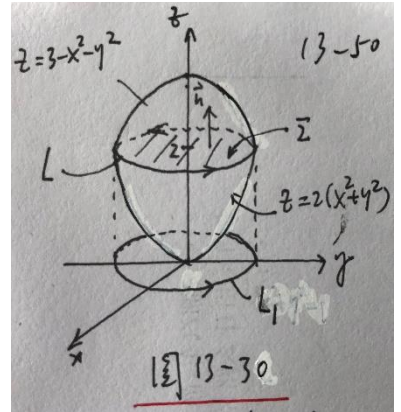 z
z=3-x²-y²
13-50
n⃗
Σ
2
L
z=2(x²+y²)
y
L₁
x
图 13-30